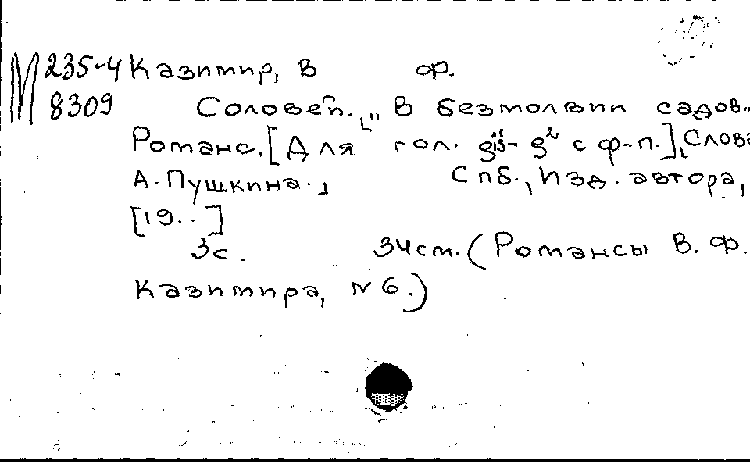 М 235-4 Казимир, В ф.
8309 Соловей. „В безмолвии садов..
Романс. [Для гол. и с ф-п.], Слова
А. Пушкина. Спб., Изд. автора,
[19..]
3с. 34см. (Романсы В. Ф.
Казимира, N 6.)